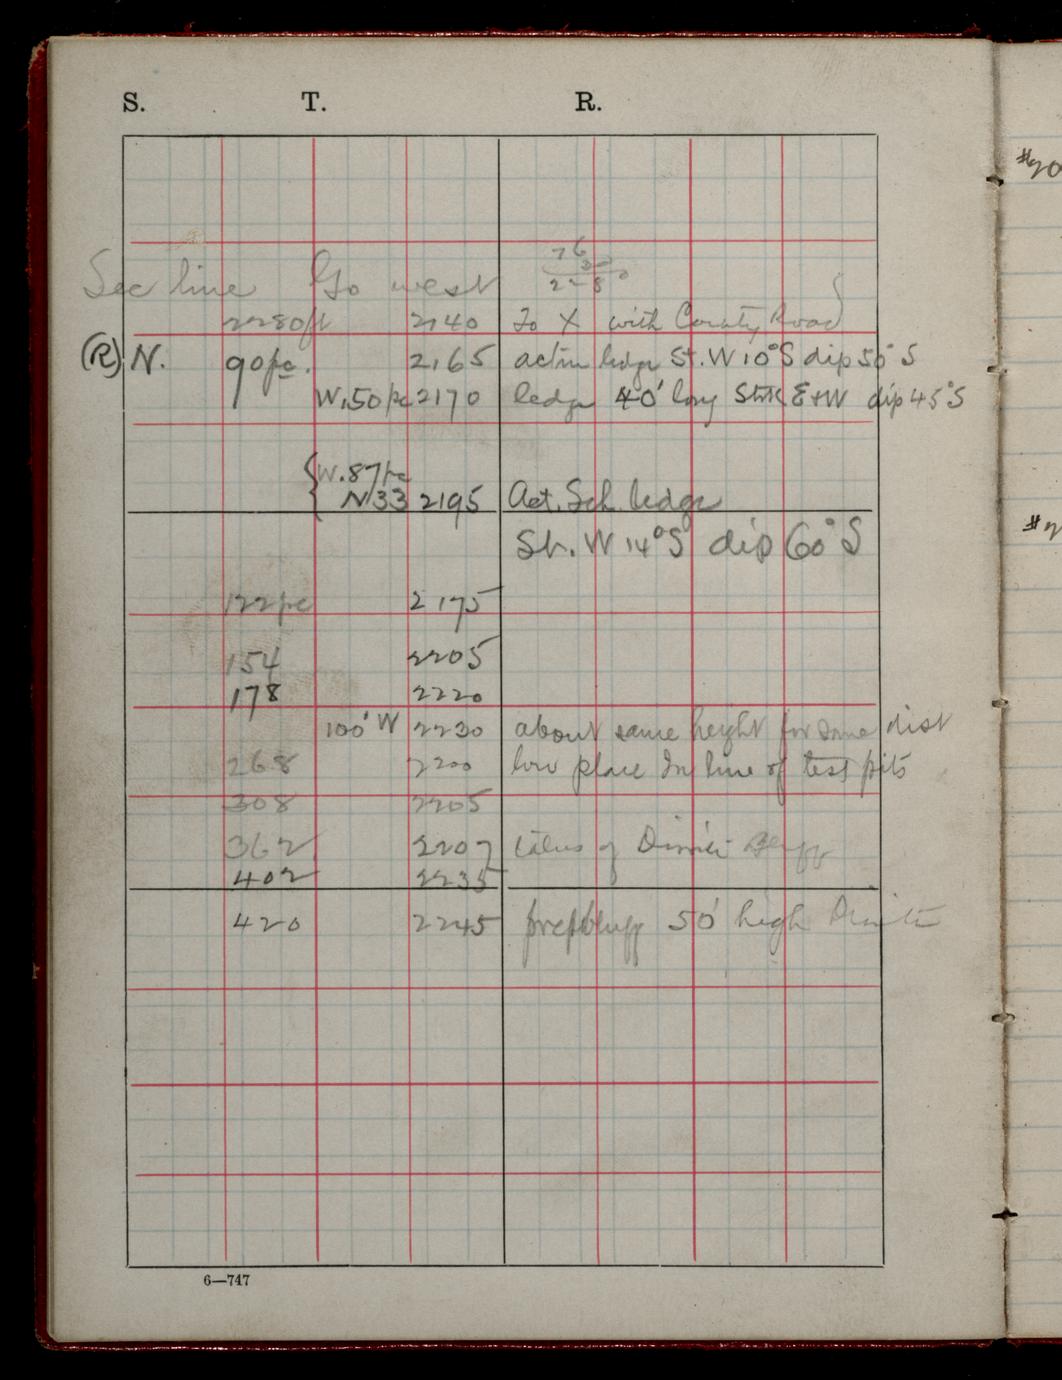 S. T. R.
76
3
228
Sec line Go west
2280ft 2140 To X with County Road
(R) N. 90pc. 2165 actin ledge St. W 10°S dip 50°S
W. 50 pc 2170 ledge 40' long Strk E+W dip 45°S
W. 87 pc
N 33 2195 Act. Sch. ledge
St. W 14°S dip 60°S
122pc 2175
154 2205
178 2220
100' W 2230 about same height for some dist
268 2200 low place In line of test pits
308 2205
362 2207 talus of Bluff
402 2235
420 2245 bluff 50' high
6—747
#20